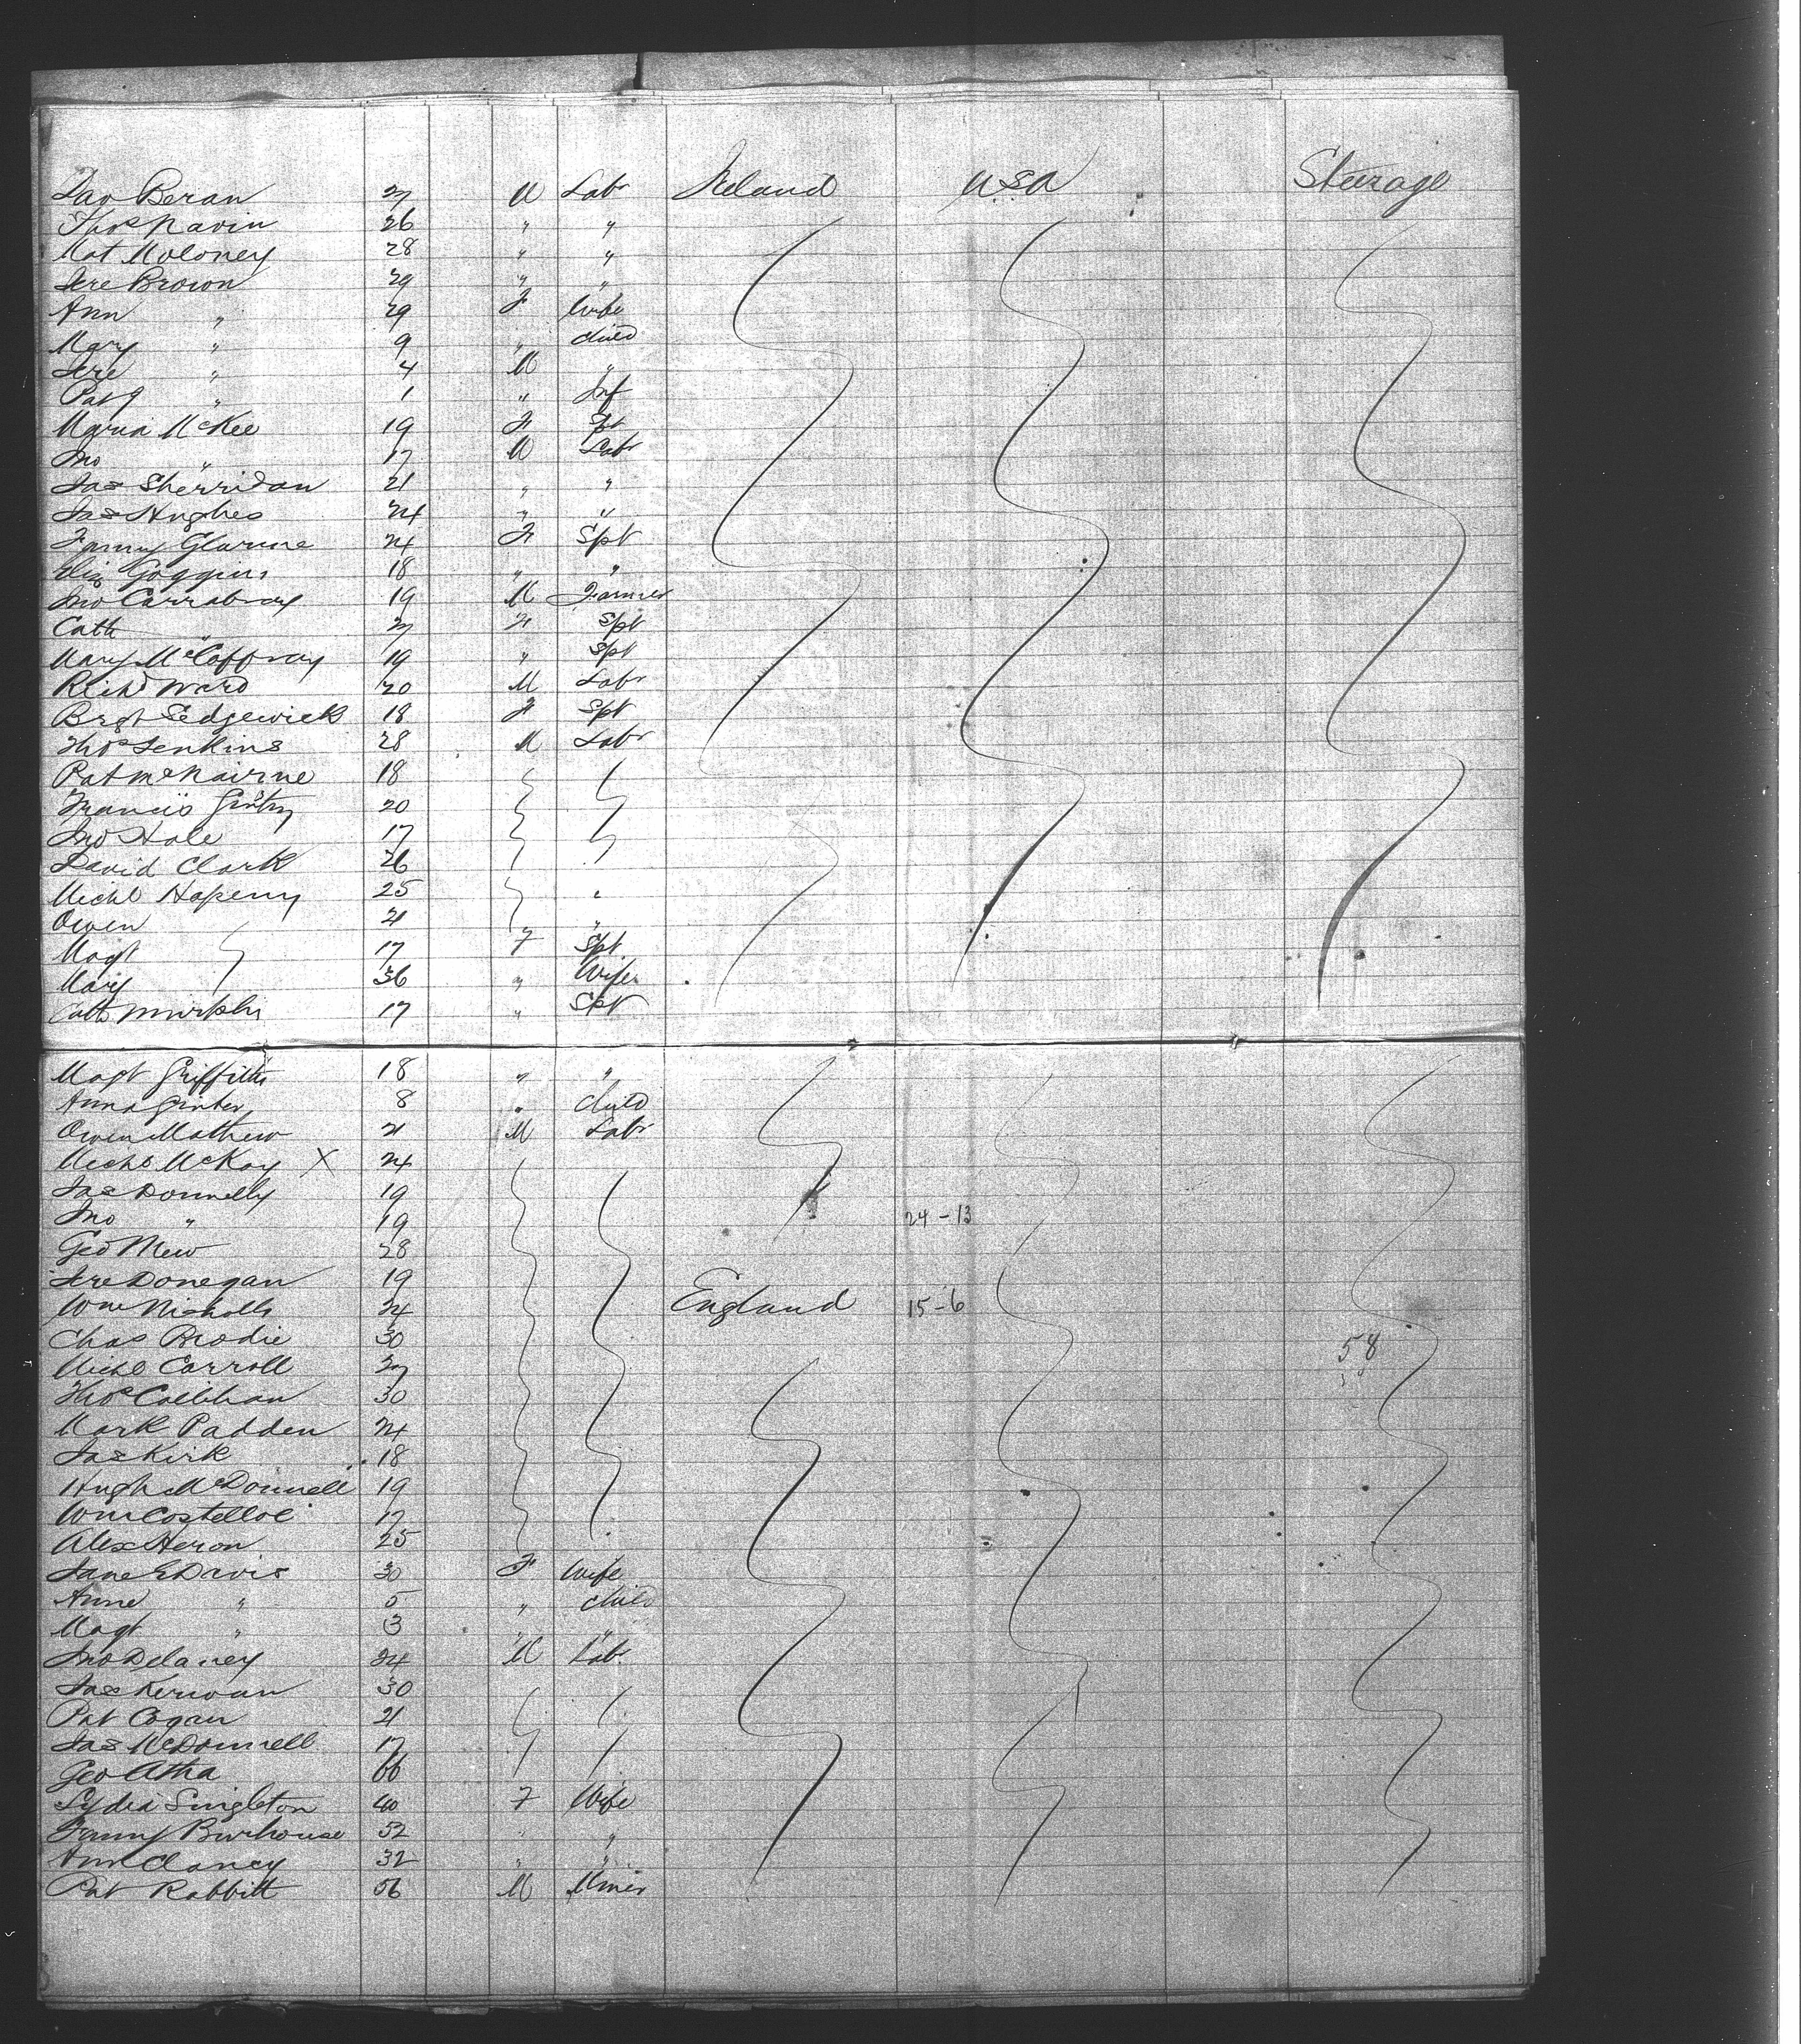 Beran 27 M Labr Ireland USA Steerage
Thos Navin 26 " "
Mat Moloney 28 " "
Jere Brown 29 " "
Ann " 29 F Wife
Mary " 9 " Child
Jere " 4 M "
Pat " 1 " Inf
Maria McKee 19 F Spt
Jno " 17 M Labr
Jas Sherridan 21 " "
Jas Hughes 24 " "
Fanny 24 F Spt
Eliz Goggins 18 " "
Jno Carrabray 19 M Farmer
Cath " 27 F Spt
Mary McCaffray 19 " Spt
Richd Ward 20 M Labr
Brgt Sedgewick 18 F Spt
Thos Jenkins 28 M Labr
Pat McNairne 18
Francis 20
Jno Hale 17
David Clark 26
Michl Hapeny 25 "
Owen 21 "
Magt 17 F Spt
Mary 36 " Wife
Cath Murphy 17 " Spt
Magt Griffiths 18 " "
Anna 8 " Child
Owen Mathew 21 M Labr
Michl McKay X 24
Jas Donnelly 19
Jno " 19 24-13
Geo Mew 28
Jere Donegan 19
Wm Nicholls 24 England 15-6
Chas Brodie 30 58
Michl Carroll 27
Thos Callihan 30
Mark Padden 24
Jas Kirk 18
Hugh McDonnell 19
Wm Costelloe 17
Alex Heron 25
Jane E Davis 30 F Wife
Anne " 5 " Child
Magt " 3 " "
Jno Delaney 24 M Labr
Jas Kerwan 30
Pat Cogan 21
Jas McDonnell 17
Geo Atha 66
Lydia Singleton 40 F Wife
Fanny Burhouse 52 " "
Ann Clancy 32 " "
Pat Rabbitt 56 M Miner